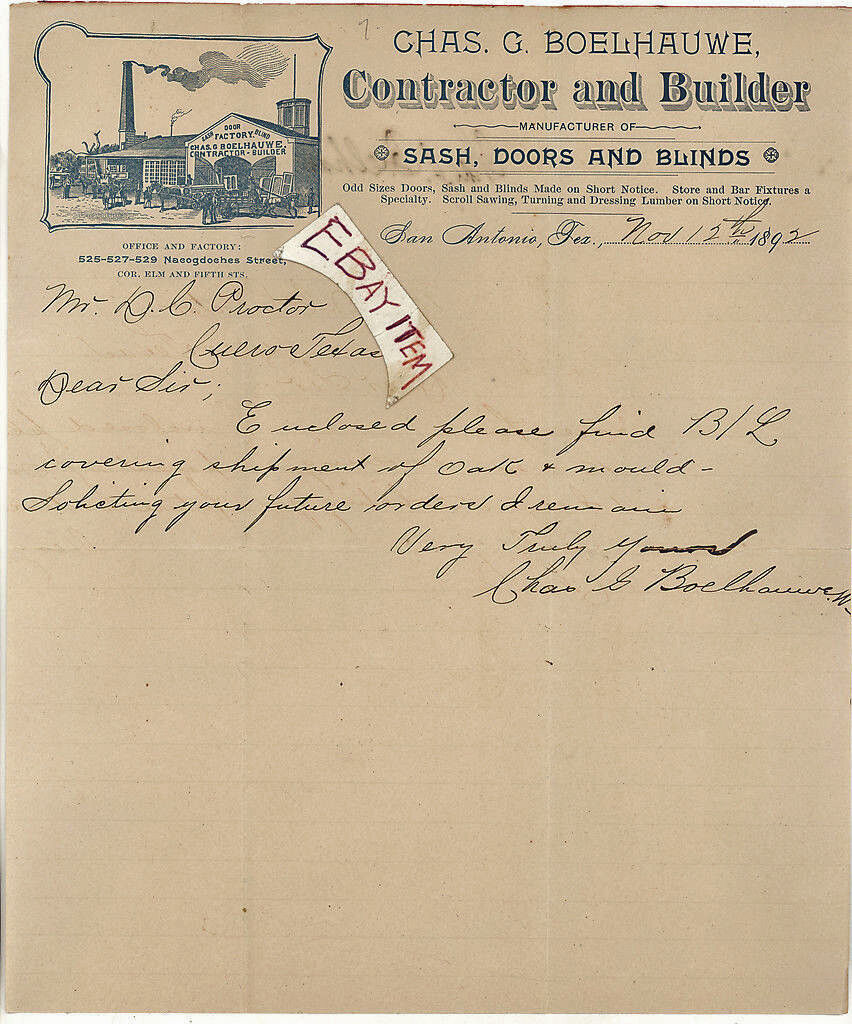 CHAS. G. BOELHAUWE,
Contractor and Builder
MANUFACTURER OF
SASH, DOORS AND BLINDS
Odd Sizes Doors, Sash and Blinds Made on Short Notice. Store and Bar Fixtures a
Specialty. Scroll Sawing, Turning and Dressing Lumber on Short Notice.
DOOR
SASH FACTORY, BLIND
CHAS. G BOELHAUWE,
CONTRACTOR - BUILDER
OFFICE AND FACTORY:
525-527-529 Nacogdoches Street,
COR. ELM AND FIFTH STS.
San Antonio, Tex., Nov 12th 1892
EBAY ITEM
Mr. D. C. Proctor
Cuero Texas
Dear Sir;
Enclosed please find B/L
covering shipment of oak & mould-
Soliciting your future orders I remain
Very Truly Yours
Chas G Boelhauwe.